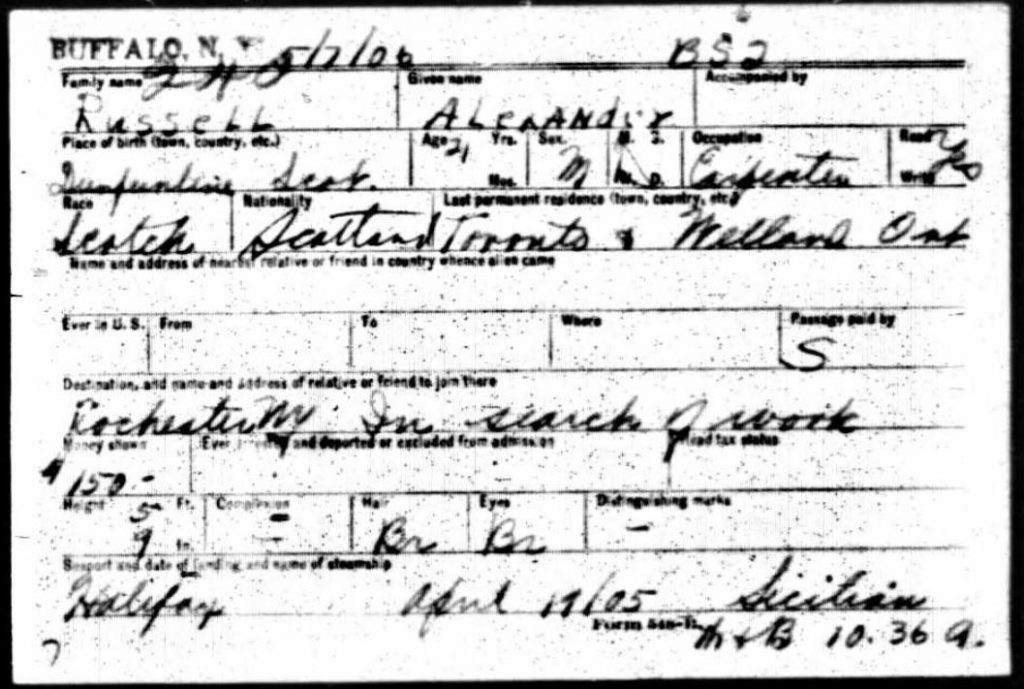 BUFFALO, N. Y 5/7/06 BS2
Family name Given name Accompanied by
Russell Alexander
Place of birth (town, country, etc.) Age 21 Yrs. Sex M. S. Occupation Read Yes
Dunfermline Scot. Mos. M W. D. Carpenter Write
Race Nationality Last permanent residence (town, country, etc.)
Scotch Scotland Toronto & Welland Ont
Name and address of nearest relative or friend in country whence alien came
Ever in U. S. From To Where Passage paid by
S
Destination, and name and address of relative or friend to join there
Rochester NY In search of work
Money shown Ever and deported or excluded from admission Head tax status
$150-
Height 5 Ft. Complexion Hair Eyes Distinguishing marks
9 In. - Br Br -
Seaport and date of landing and name of steamship
Halifax April 19/05 Sicilian
Form 548-B. 10.36 a.